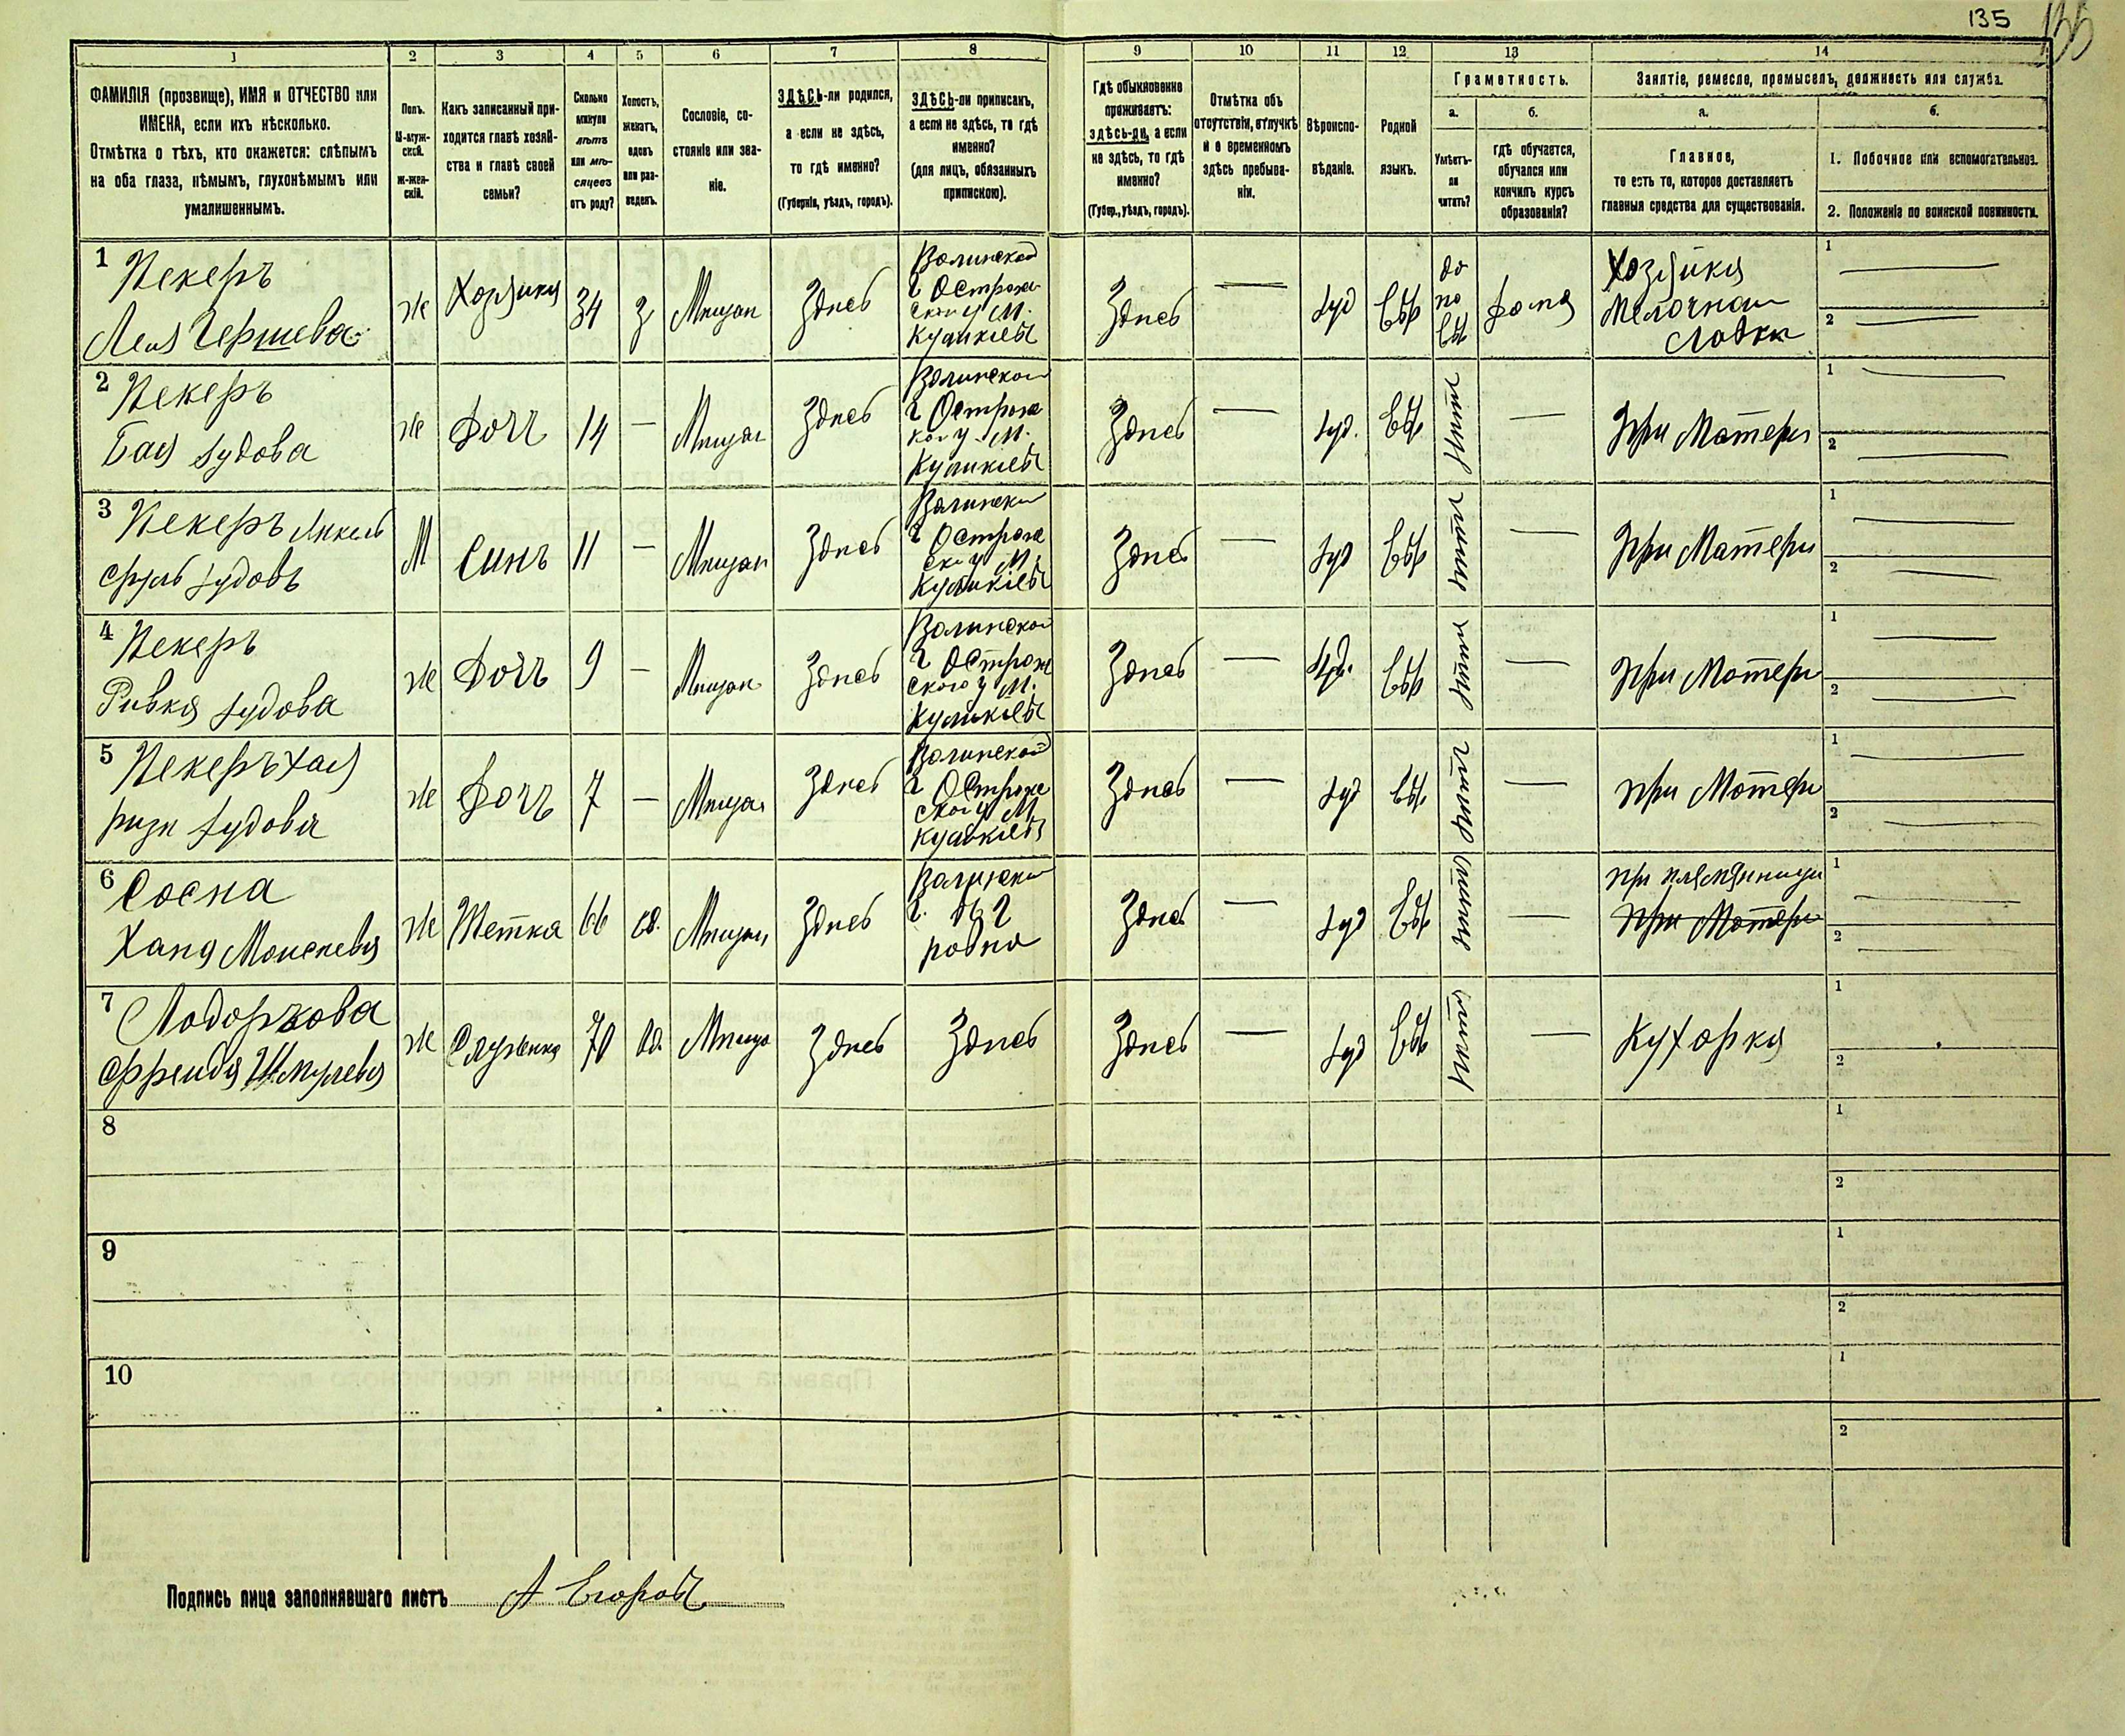 135
135
1
2
3
4
5
6
7
8
9
10
11
12
13
14
ФАМИЛІЯ (прозвище), ИМЯ и ОТЧЕСТВО или
ИМЕНА, если ихъ нѣсколько.
Отмѣтка о тѣхъ, кто окажется: слѣпымъ
на оба глаза, нѣмымъ, глухонѣмымъ или
умалишеннымъ.
Полъ.
М-муж-
ской.
Ж-жен-
скій.
Какъ записанный при-
ходится главѣ хозяй-
ства и главѣ своей
семьи?
Сколько
минуло
лѣтъ
или мѣ-
сяцевъ
отъ роду?
Холостъ,
женатъ,
вдовъ
или раз-
веденъ.
Сословіе, со-
стояніе или зва-
ніе.
ЗДѢСЬ-ли родился,
а если не здѣсь,
то гдѣ именно?
(Губернія, уѣздъ, городъ).
ЗДѢСЬ-ли приписанъ,
а если не здѣсь, то гдѣ
именно?
(для лицъ, обязанныхъ
припискою).
Гдѣ обыкновенно
проживаетъ:
здѣсь-ли, а если
не здѣсь, то гдѣ
именно?
(Губер., уѣздъ, городъ).
Отмѣтка объ
отсутствіи, отлучкѣ
и о временномъ
здѣсь пребыва-
ніи.
Вѣроиспо-
вѣданіе.
Родной
языкъ.
Грамотность.
а.
Умѣетъ-
ли
читать?
б.
гдѣ обучается,
обучался или
кончилъ курсъ
образованія?
Занятіе, ремесло, промыселъ, должность или служба.
а.
Главное,
то есть то, которое доставляетъ
главныя средства для существованія.
б.
1. Побочное или вспомогательное.
2. Положеніе по воинской повинности.
1 Пекеръ
Лея Гершева
Ж
Хозяика
34
З
Мещан
Здесь
Волинской
г Острож
ского у М.
Здесь
Іуд
Евр
дома
Хозяика
Мелочной
Лавки
1
2
2 Пекеръ
Бая Іудова
Ж
Дочь
14
—
Мещан
Здесь
Волинской
г Острож
ког у М.
Здесь
—
Іуд.
Евр
—
При Матери
1
2
3 Пекеръ Янкель
Сруль Іудовъ
М
Синъ
11
—
Мещан
Здесь
Волинской
г Острож
ског у М.
Здесь
—
Іуд
Евр
—
При Матери
1
2
4 Пекеръ
Ривка Іудова
Ж
Дочь
9
—
Мещан
Здесь
Волинской
г Острож
ского у М.
Здесь
—
Іуд.
Евр
—
При Матери
1
2
5 Пекеръ Хая
Іудова
Ж
Дочь
7
—
Мещан
Здесь
Волинской
г Острож
ског у М
Здесь
—
Іуд
Евр
—
при Матери
1
2
6 Сосна
Хана Моисеева
Ж
Тетка
66
вд.
Мещан
Здесь
Волинской
г.
ровно
Здесь
—
Іуд
Евр
—
при племяннице
при Матери
1
2
7
Шмулева
Ж
Служанка
70
вд.
Мещан
Здесь
Здесь
Здесь
—
Іуд
Евр
—
Кухарка
1
2
8
1
2
9
1
2
10
1
2
Подпись лица заполнявшаго листъ А Егоровъ